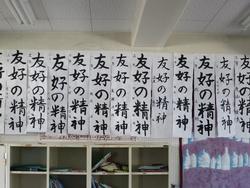 の精神
友好の精神
友好の精神
友好の精神
友好の精神
友好の精神
友好の精神
友好の精神
友好の精神
友好の精神
友好の精神
友好の精神